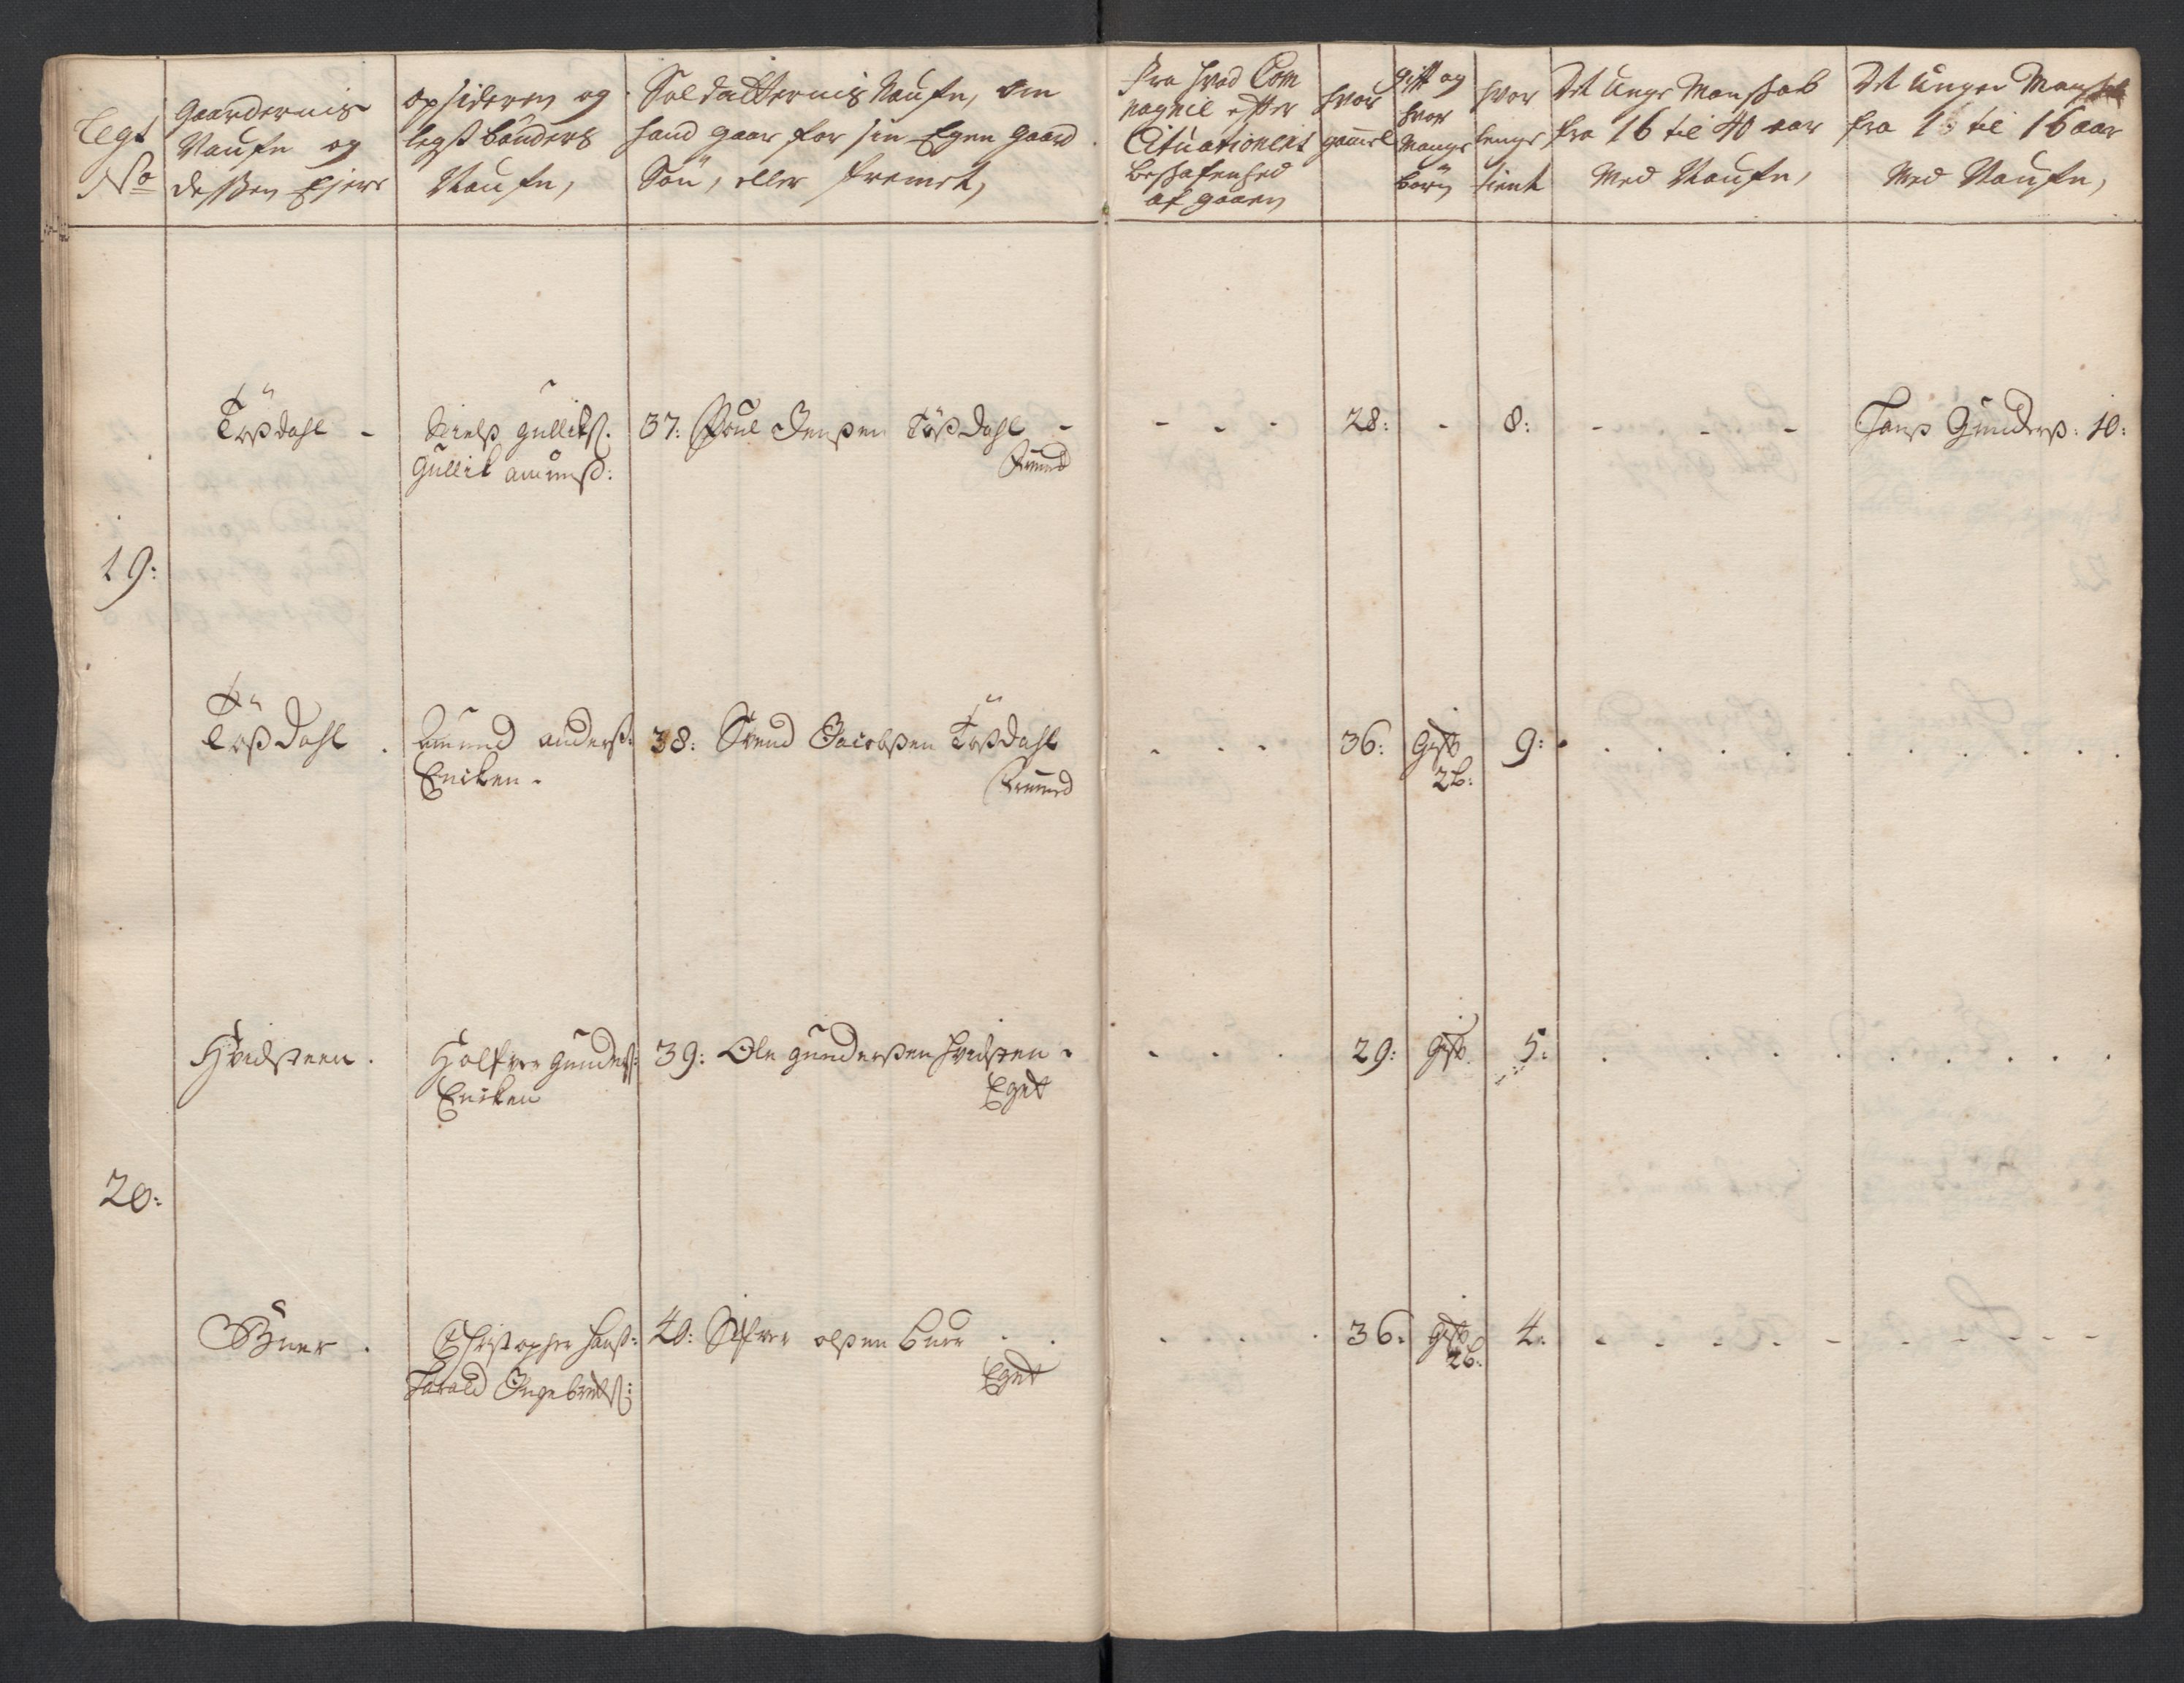 Legt
No
Gaardernis
Naufn og
dessen Ejere
opsideren og
legst bönders
Naufn,
Soldatternis Naufn, om
hand gaar for sin Egen gaard
Sön, eller fremet,
Fra hvad Com
pagnie efter
Cituationens
beschafenhed
af gaarn
hvor
gammel
gift og
hvor
mange
börn
hvor
lenge
tient
Det Unge Manskab
fra 16 til 40 aar
Med Naufn,
Det Unger Manskab
fra 1 til 16 aar
Med Naufn,
19:
Tössdahl -
Nielss Gullichs.
Gullik amunds:
37: Poul Jenssen Tössdahl -
Fremed
- - -
28:
-
8:
- - -
Hans Gunderss: 10:
Tössdahl .
Amund anderss:
Encken .
38: Svend Jacobssen Tössdahl
Fremmed
. - -
36:
Gift
2b:
9:
20:
Hvidsteen .
Holfver Gunderss:
Encken
39: Ole Gunderssen Hvidsten .
Eget
- . .
29:
Gift.
5:
Buer .
Christopher Hanss:
Harald Ingebrets:
40: Sifver olssen Buer . .
Eget
. . . .
36:
gift
2b:
4: